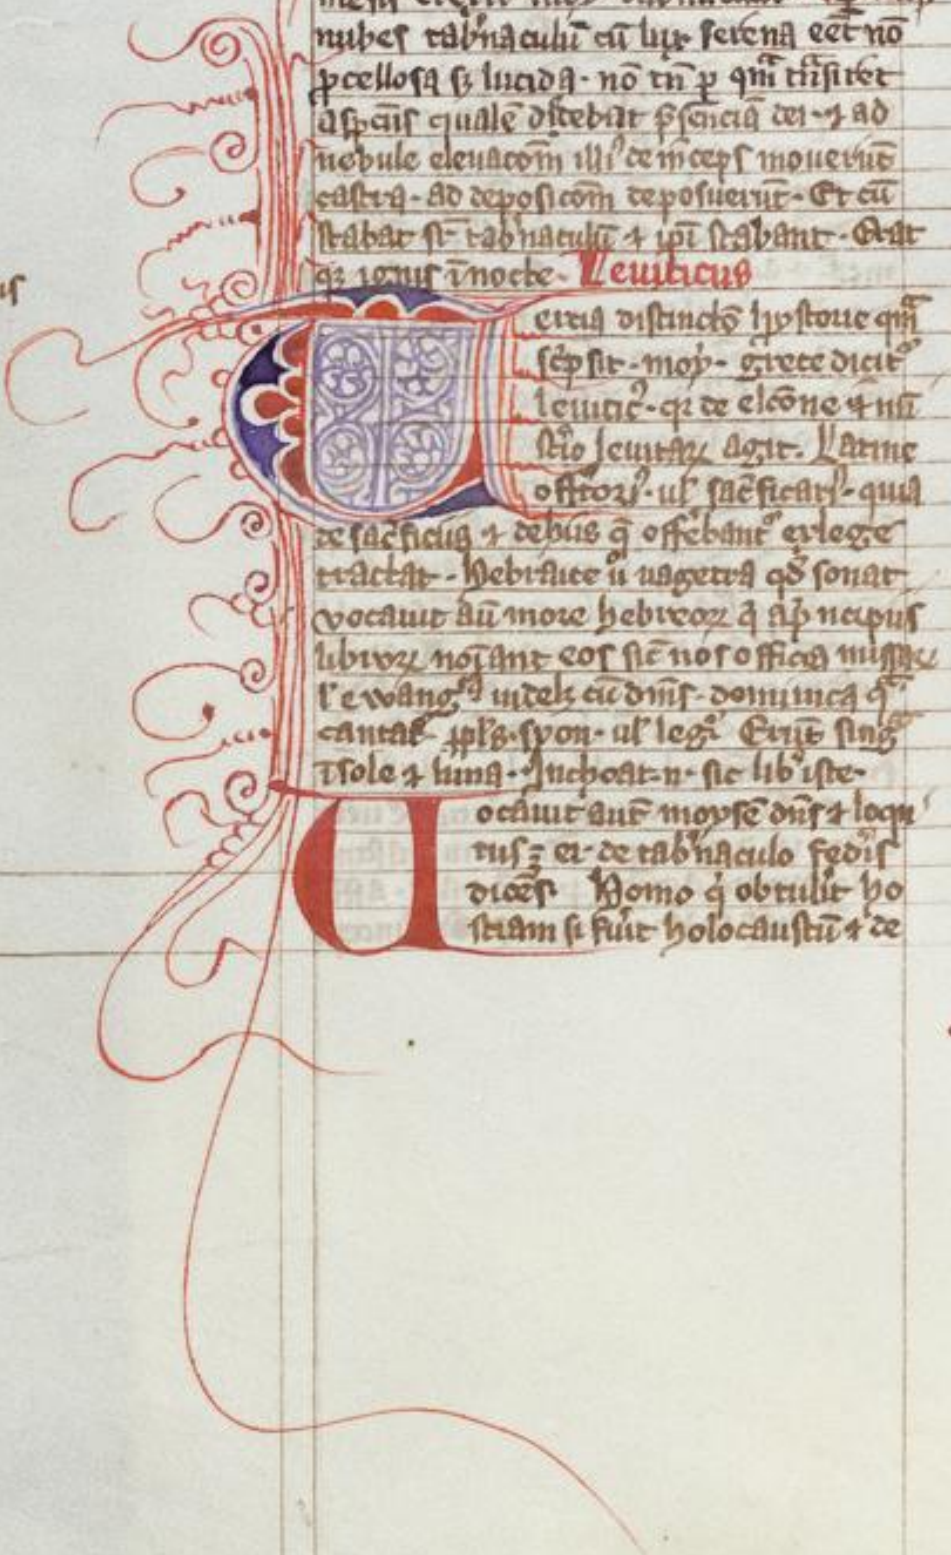 nubes tab'naculū cū lux serena eēt nō
ꝓcellosa sꝫ lucida · nō tn̄ ꝑ qm̄ t̄nsiret
aspcūs qualē dicebāt p̄senciā dei · ⁊ ad
nebule eleuacōm illi' deinceps mouerūt
castra · ad deposicōm deposuerūt · Et cū
stabat s͛ tab'naculū ⁊ ip̄i stabant · Erat
qꝫ ignis ī nocte · Leuiticus
ercia distinctō hystorie qm̄
sc̄psit · moy · grece dicit᷑
leuitic᷒ · qꝛ de elcōne ⁊ mī
st'io leuitaꝝ agit · Latine
offtoꝝ · ul' sac̄ficaꝝ · quia
de sac̄ficiis ⁊ debus q̄ offebant᷑ ex lege
tractat · Hebraice ū uagetra qd̄ sonat
vocauit aū more hebreoꝝ q̄ a p̄ncipiis
libroꝝ noīant eos sic̄ nos officia missaꝝ
l' ewang᷑ uidelꝫ cū dn̄s · dominica q̄
cantat᷑ ppl's · syon · ul' leg᷑ Erūt sing᷑
ī sole ⁊ luna · Inchoat · n · sic lib' iste ·
Uocauit aut̄ moysē dn̄s ⁊ loqu
tus ꝫ ei · de tab'naculo fed'is
dicēs Homo q̇ obtulit ho
stiam si fu'it holocaustū ⁊ de